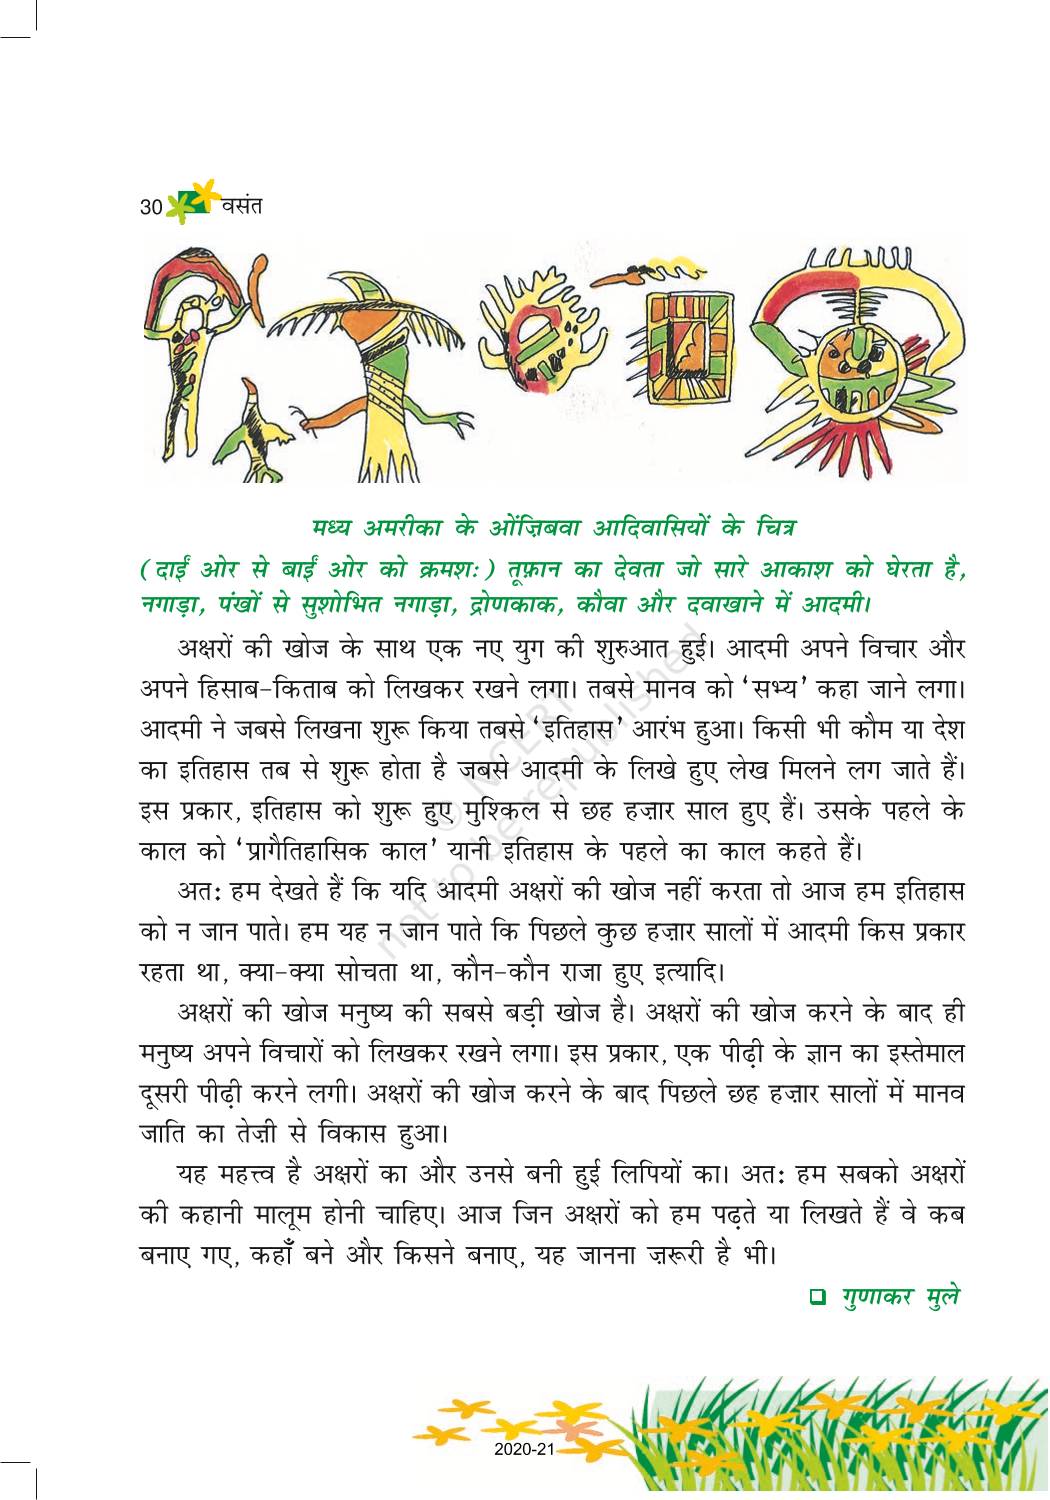 30 वसंत
मध्य अमरीका के ओंज़िबवा आदिवासियों के चित्र
(दाईं ओर से बाईं ओर को क्रमशः) तूफ़ान का देवता जो सारे आकाश को घेरता है,
नगाड़ा, पंखों से सुशोभित नगाड़ा, द्रोणकाक, कौवा और दवाखाने में आदमी।
अक्षरों की खोज के साथ एक नए युग की शुरुआत हुई। आदमी अपने विचार और
अपने हिसाब-किताब को लिखकर रखने लगा। तबसे मानव को ‘सभ्य’ कहा जाने लगा।
आदमी ने जबसे लिखना शुरू किया तबसे ‘इतिहास’ आरंभ हुआ। किसी भी कौम या देश
का इतिहास तब से शुरू होता है जबसे आदमी के लिखे हुए लेख मिलने लग जाते हैं।
इस प्रकार, इतिहास को शुरू हुए मुश्किल से छह हज़ार साल हुए हैं। उसके पहले के
काल को ‘प्रागैतिहासिक काल’ यानी इतिहास के पहले का काल कहते हैं।
अतः हम देखते हैं कि यदि आदमी अक्षरों की खोज नहीं करता तो आज हम इतिहास
को न जान पाते। हम यह न जान पाते कि पिछले कुछ हज़ार सालों में आदमी किस प्रकार
रहता था, क्या-क्या सोचता था, कौन-कौन राजा हुए इत्यादि।
अक्षरों की खोज मनुष्य की सबसे बड़ी खोज है। अक्षरों की खोज करने के बाद ही
मनुष्य अपने विचारों को लिखकर रखने लगा। इस प्रकार, एक पीढ़ी के ज्ञान का इस्तेमाल
दूसरी पीढ़ी करने लगी। अक्षरों की खोज करने के बाद पिछले छह हज़ार सालों में मानव
जाति का तेज़ी से विकास हुआ।
यह महत्त्व है अक्षरों का और उनसे बनी हुई लिपियों का। अतः हम सबको अक्षरों
की कहानी मालूम होनी चाहिए। आज जिन अक्षरों को हम पढ़ते या लिखते हैं वे कब
बनाए गए, कहाँ बने और किसने बनाए, यह जानना ज़रूरी है भी।
❑ गुणाकर मुले
© NCERT
not to be republished
2020-21